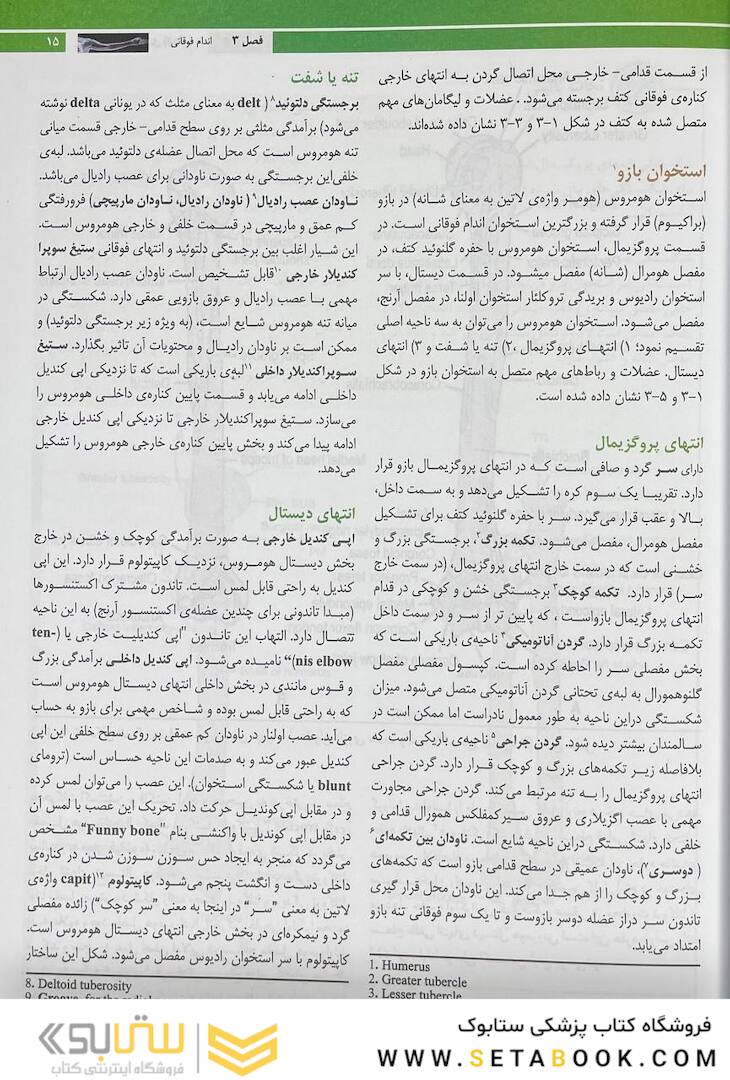 فصل ۳ اندام فوقانی
۱۵
از قسمت قدامی- خارجی محل اتصال گردن به انتهای خارجی
کناره‌ی فوقانی کتف برجسته می‌شود. . عضلات و لیگامان‌های مهم
متصل شده به کتف در شکل ۱-۳ و ۳-۳ نشان داده شده‌اند.
استخوان بازو۱
استخوان هومروس (هومر واژه‌ی لاتین به معنای شانه) در بازو
(براکیوم) قرار گرفته و بزرگترین استخوان اندام فوقانی است. در
قسمت پروگزیمال، استخوان هومروس با حفره گلنوئید کتف، در
مفصل هومرال (شانه) مفصل میشود. در قسمت دیستال، با سر
استخوان رادیوس و بریدگی تروکلئار استخوان اولنا، در مفصل آرنج،
مفصل می‌شود. استخوان هومروس را می‌توان به سه ناحیه اصلی
تقسیم نمود؛ ۱) انتهای پروگزیمال ،۲) تنه یا شفت و ۳) انتهای
دیستال. عضلات و رباط‌های مهم متصل به استخوان بازو در شکل
۱-۳ و ۵-۳ نشان داده شده است.
انتهای پروگزیمال
دارای سر گرد و صافی است که در انتهای پروگزیمال بازو قرار
دارد. تقریبا یک سوم کره را تشکیل می‌دهد و به سمت داخل،
بالا و عقب قرار می‌گیرد. سر با حفره گلنوئید کتف برای تشکیل
مفصل هومرال، مفصل می‌شود. تکمه بزرگ۲، برجستگی بزرگ و
خشنی است که در سمت خارج انتهای پروگزیمال، (در سمت خارج
سر) قرار دارد. تکمه کوچک۳ برجستگی خشن و کوچکی در قدام
انتهای پروگزیمال بازواست ، که پایین تر از سر و در سمت داخل
تکمه بزرگ قرار دارد. گردن آناتومیکی۴ ناحیه‌ی باریکی است که
بخش مفصلی سر را احاطه کرده است. کپسول مفصلی مفصل
گلنوهمورال به لبه‌ی تحتانی گردن آناتومیکی متصل می‌شود. میزان
شکستگی دراین ناحیه به طور معمول نادراست اما ممکن است در
سالمندان بیشتر دیده شود. گردن جراحی۵ ناحیه‌ی باریکی است که
بلافاصله زیر تکمه‌های بزرگ و کوچک قرار دارد. گردن جراحی
انتهای پروگزیمال را به تنه مرتبط می‌کند. گردن جراحی مجاورت
مهمی با عصب اگزیلاری و عروق سیرکمفلکس همورال قدامی و
خلفی دارد. شکستگی دراین ناحیه شایع است. ناودان بین تکمه‌ای۶
( دوسری۷)، ناودان عمیقی در سطح قدامی بازو است که تکمه‌های
بزرگ و کوچک را از هم جدا می‌کند. این ناودان محل قرار گیری
تاندون سر دراز عضله دوسر بازوست و تا یک سوم فوقانی تنه بازو
امتداد می‌یابد.
1. Humerus
2. Greater tubercle
3. Lesser tubercle
تنه یا شفت
برجستگی دلتوئید۸ ( delt به معنای مثلث که در یونانی delta نوشته
می‌شود) برآمدگی مثلثی بر روی سطح قدامی- خارجی قسمت میانی
تنه هومروس است که محل اتصال عضله‌ی دلتوئید می‌باشد. لبه‌ی
خلفی‌این برجستگی به صورت ناودانی برای عصب رادیال می‌باشد.
ناودان عصب رادیال۹ ( ناودان رادیال، ناودان مارپیچی) فرورفتگی
کم عمق و مارپیچی در قسمت خلفی و خارجی هومروس است.
این شیار اغلب بین برجستگی دلتوئید و انتهای فوقانی ستیغ سوپرا
کندیلار خارجی ۱۰قابل تشخیص است. ناودان عصب رادیال ارتباط
مهمی با عصب رادیال و عروق بازویی عمقی دارد. شکستگی در
میانه تنه هومروس شایع است، (به ویژه زیر برجستگی دلتوئید) و
ممکن است بر ناودان رادیال و محتویات آن تاثیر بگذارد. ستیغ
سوپراکندیلار داخلی ۱۱لبه‌ی باریکی است که تا نزدیکی اپی کندیل
داخلی ادامه می‌یابد و قسمت پایین کناره‌ی داخلی هومروس را
می‌سازد. ستیغ سوپراکندیلار خارجی تا نزدیکی اپی کندیل خارجی
ادامه پیدا می‌کند و بخش پایین کناره‌ی خارجی هومروس را تشکیل
می‌دهد.
انتهای دیستال
اپی کندیل خارجی به صورت برآمدگی کوچک و خشن در خارج
بخش دیستال هومروس، نزدیک کاپیتولوم قرار دارد. این اپی
کندیل به راحتی قابل لمس است. تاندون مشترک اکستنسورها
(مبدا تاندونی برای چندین عضله‌ی اکستنسور آرنج) به این ناحیه
تتصال دارد. التهاب این تاندون "اپی کندیلیت خارجی یا (ten-
nis elbow)“ نامیده می‌شود. اپی کندیل داخلی برآمدگی بزرگ
و قوس مانندی در بخش داخلی انتهای دیستال هومروس است
که به راحتی قابل لمس بوده و شاخص مهمی برای بازو به حساب
می‌آید. عصب اولنار در ناودان کم عمقی بر روی سطح خلفی این اپی
کندیل عبور می‌کند و به صدمات این ناحیه حساس است (ترومای
blunt یا شکستگی استخوان). این عصب را می‌توان لمس کرده
و در مقابل اپی‌کوندیل حرکت داد. تحریک این عصب با لمس آن
در مقابل اپی کوندیل با واکنشی بنام "Funny bone“ مشخص
می‌گردد که منجر به ایجاد حس سوزن سوزن شدن در کناره‌ی
داخلی دست و انگشت پنجم می‌شود. کاپیتولوم ۱۲(capit واژه‌ی
لاتین به معنی ”سر“ در اینجا به معنی ”سر کوچک“) زائده مفصلی
گرد و نیمکره‌ای در بخش خارجی انتهای دیستال هومروس است.
کاپیتولوم با سر استخوان رادیوس مفصل می‌شود. شکل این ساختار
8. Deltoid tuberosity
فروشگاه کتاب پزشکی ستابوک
WWW.SETABOOK.COM
ستابوک
فروشگاه اینترنتی کتاب